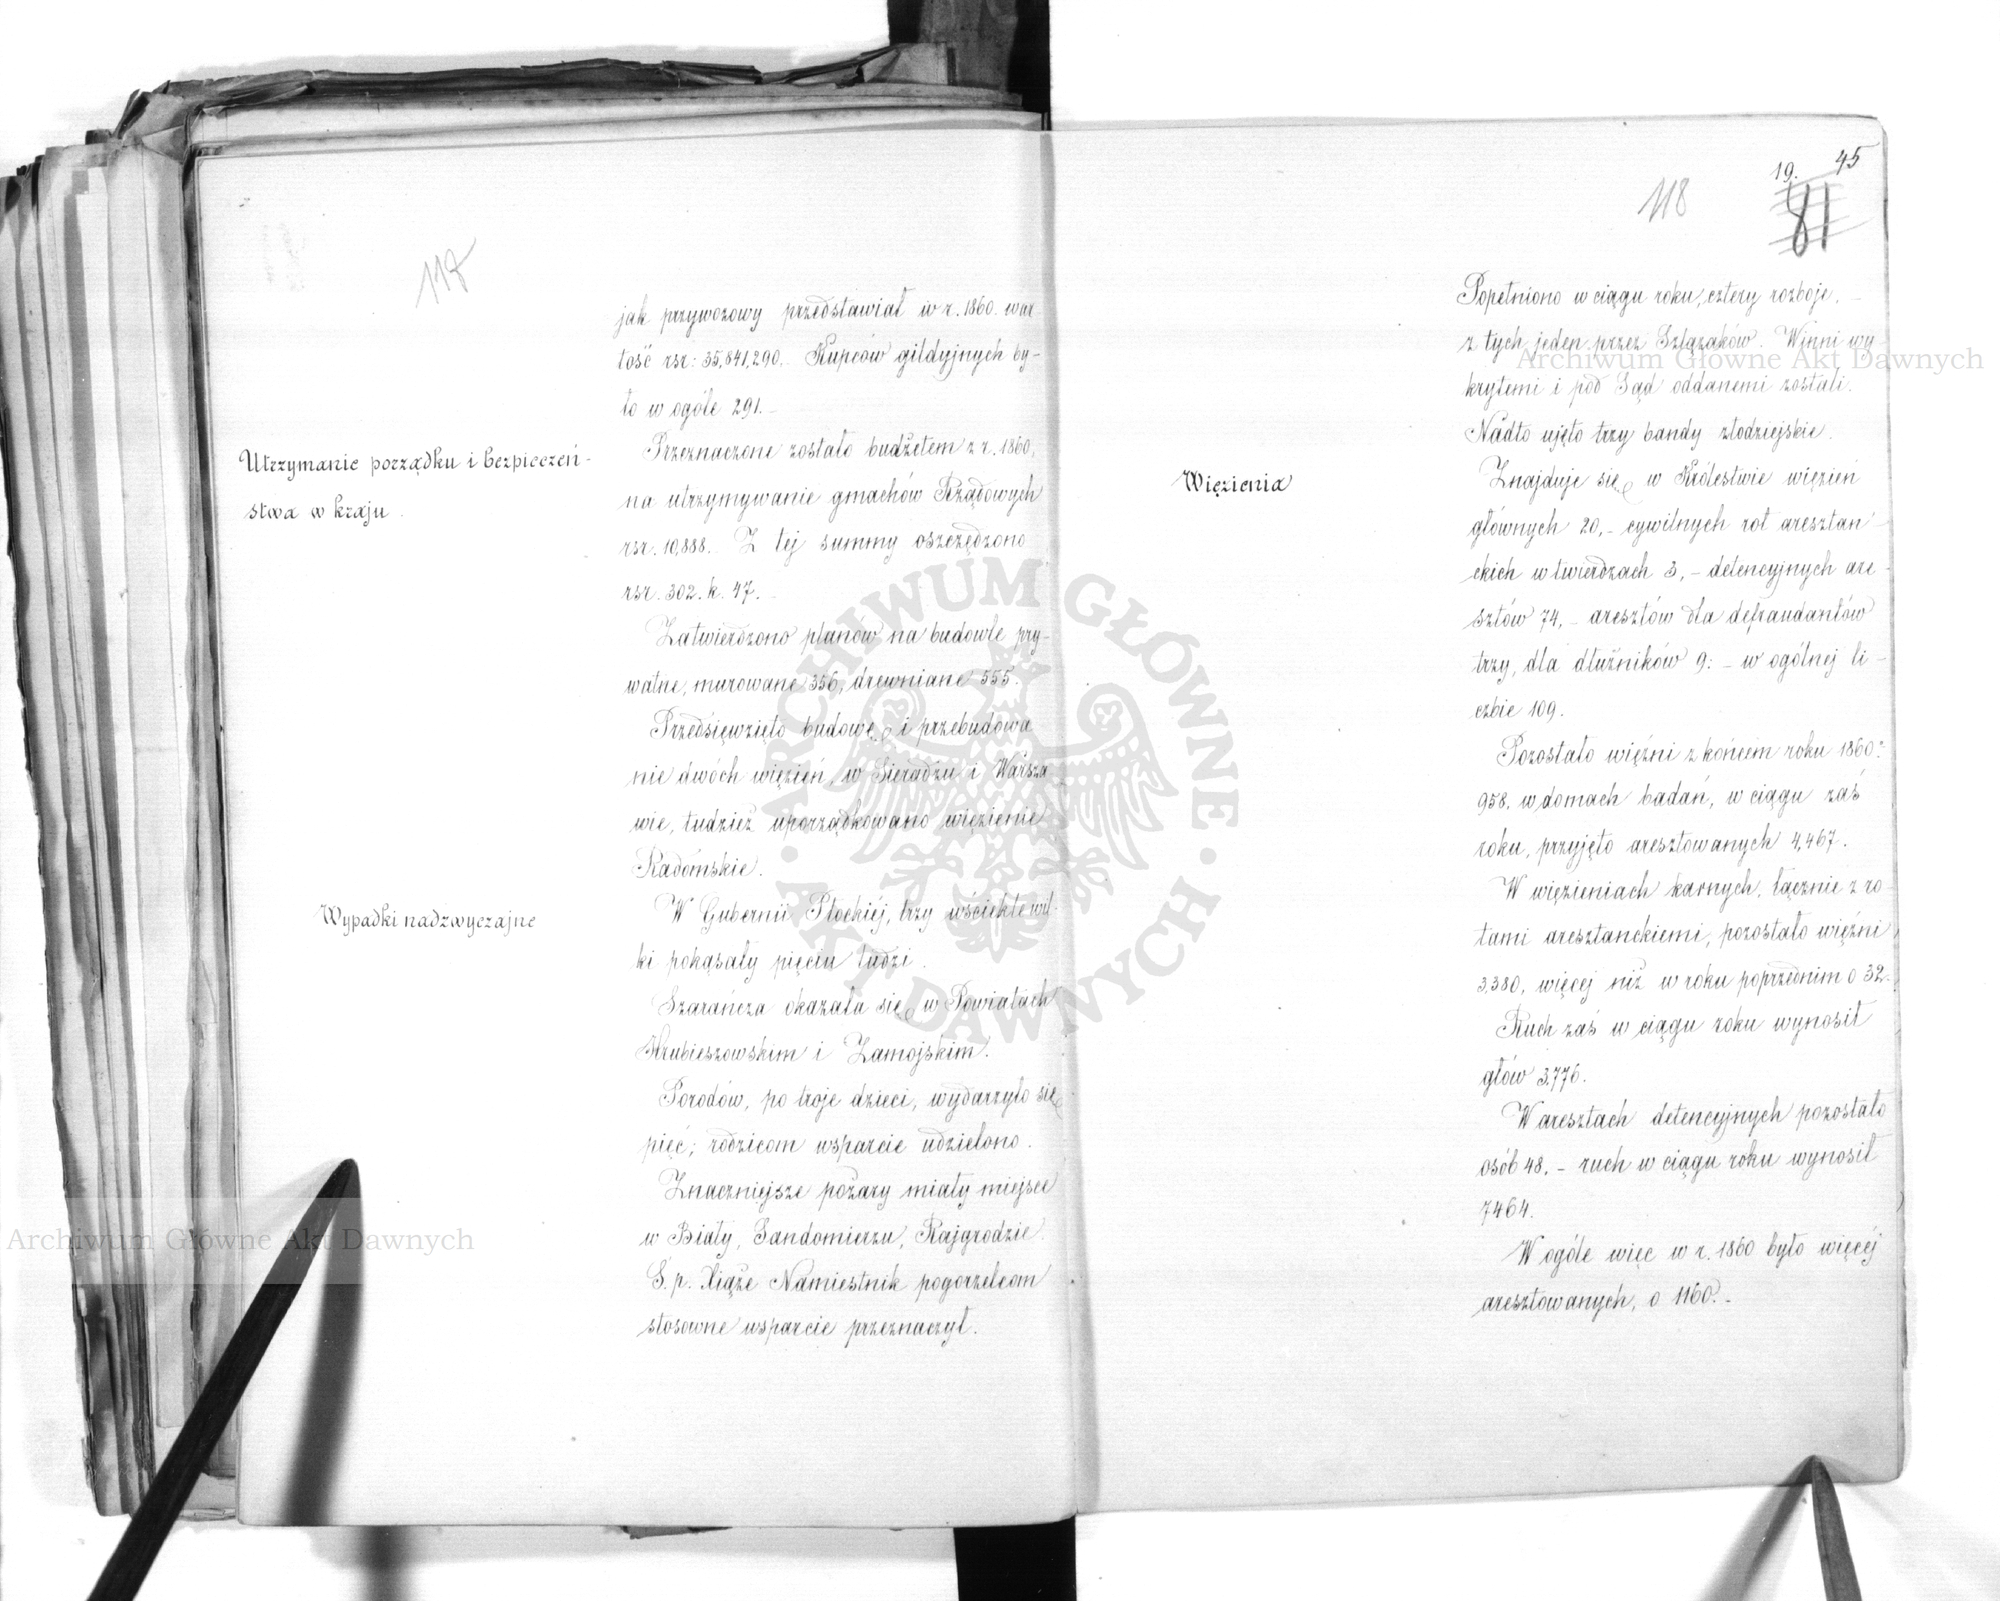 118
jak przywozowy przedstawiał w r. 1860. war
tość rsr: 35,841,290. Kupców gildyjnych by-
ło w ogóle 291.
Utrzymanie porządku i bezpieczeń-
stwa w kraju.
Przeznaczone zostało budżetem z r. 1860,
na utrzymywanie gmachów Rządowych
rsr. 10,888. Z tej summy oszczędzono
rsr. 302. k. 47.
Zatwierdzono planow na budowle pry-
watne, murowane 356, drewniane 555.
Przedsięwzięto budowę i przebudowa
nie dwóch więzień w Sieradzu i Warsza
wie, tudzież uporządkowano więzienie
Radomskie.
Wypadki nadzwyczajne
W Gubernii Płockiéj, trzy wściekłe wil-
ki pokąsały pięciu ludzi.
Szarańcza okazała się w Powiatach
Hrubieszowskim i Zamojskim.
Porodów, po troje dzieci, wydarzyło się
pięć; rodzicom wsparcie udzielono.
Znaczniejsze pożary miały miejsce
w Biały, Sandomierzu, Rajgrodzie.
Ś. p. Xiąże Namiestnik pogorzelcom
stosowne wsparcie przeznaczył.
118
19.
45
81
Popełniono w ciągu roku, cztéry rozboje,
z tych jeden przez Szlązaków. Winni wy-
krytemi i pod Sąd oddanemi zostali.
Nadto ujęto trzy bandy złodziejskie.
Więzienia
Znajduje się w Królestwie więzień
głównych 20, - cywilnych rot aresztan-
ckich w twierdzach 3, - detencyjnych are-
sztów 74, - aresztów dla defraudantów
trzy, dla dłużników 9: - w ogólnej li-
czbie 109.
Pozostało więźni z końcem roku 1860:
958. w domach badań, w ciągu zaś
roku, przyjęto aresztowanych 4,467.
W więzieniach karnych, łącznie z ro-
tami aresztanckiemi, pozostało więźni
3,380, więcej niż w roku poprzednim o 32.
Ruch zaś w ciągu roku wynosił
głów 3,776.
W aresztach detencyjnych pozostało
osób 48. - ruch w ciągu roku wynosił
7464.
W ogóle więc w r. 1860 było więcéj
aresztowanych, o 1160. -
Archiwum Główne Akt Dawnych
Archiwum Główne Akt Dawnych
ARCHIWUM GŁÓWNE AKT DAWNYCH